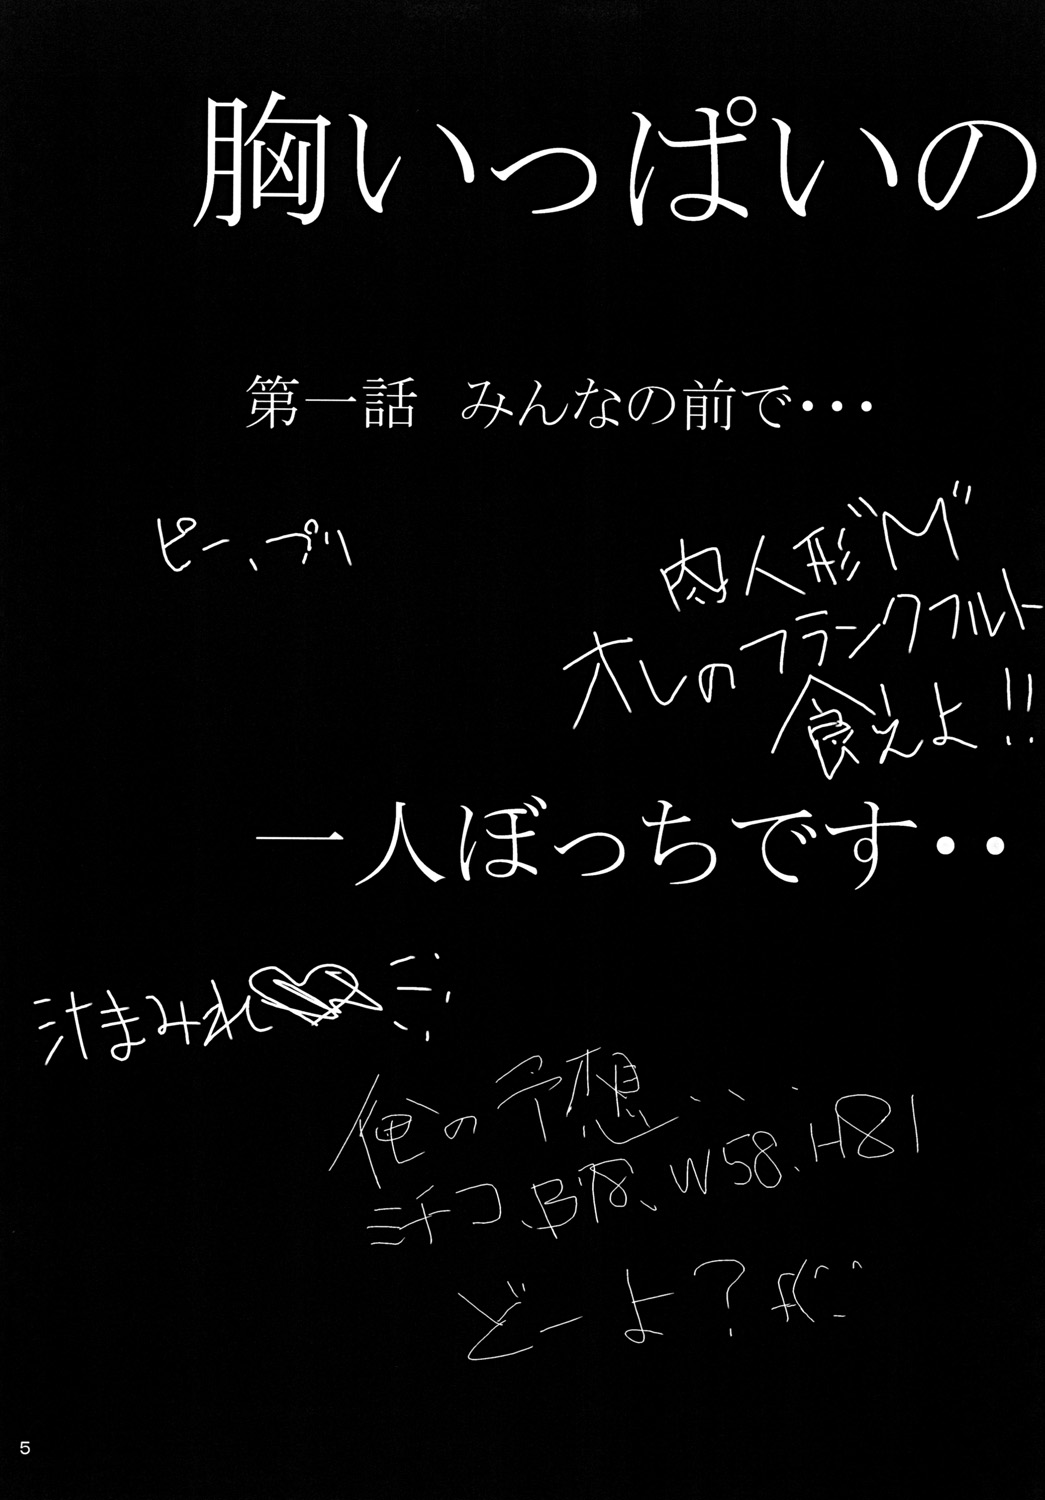 胸いっぱいの
第一話 みんなの前で・・・
ピー、ブリ
肉人形"M"
オレのフランクフルト
食えよ!!
一人ぼっちです・・
汁まみれ
俺の予想...
ミチコ、B78、W58、H81
どーよ?
5